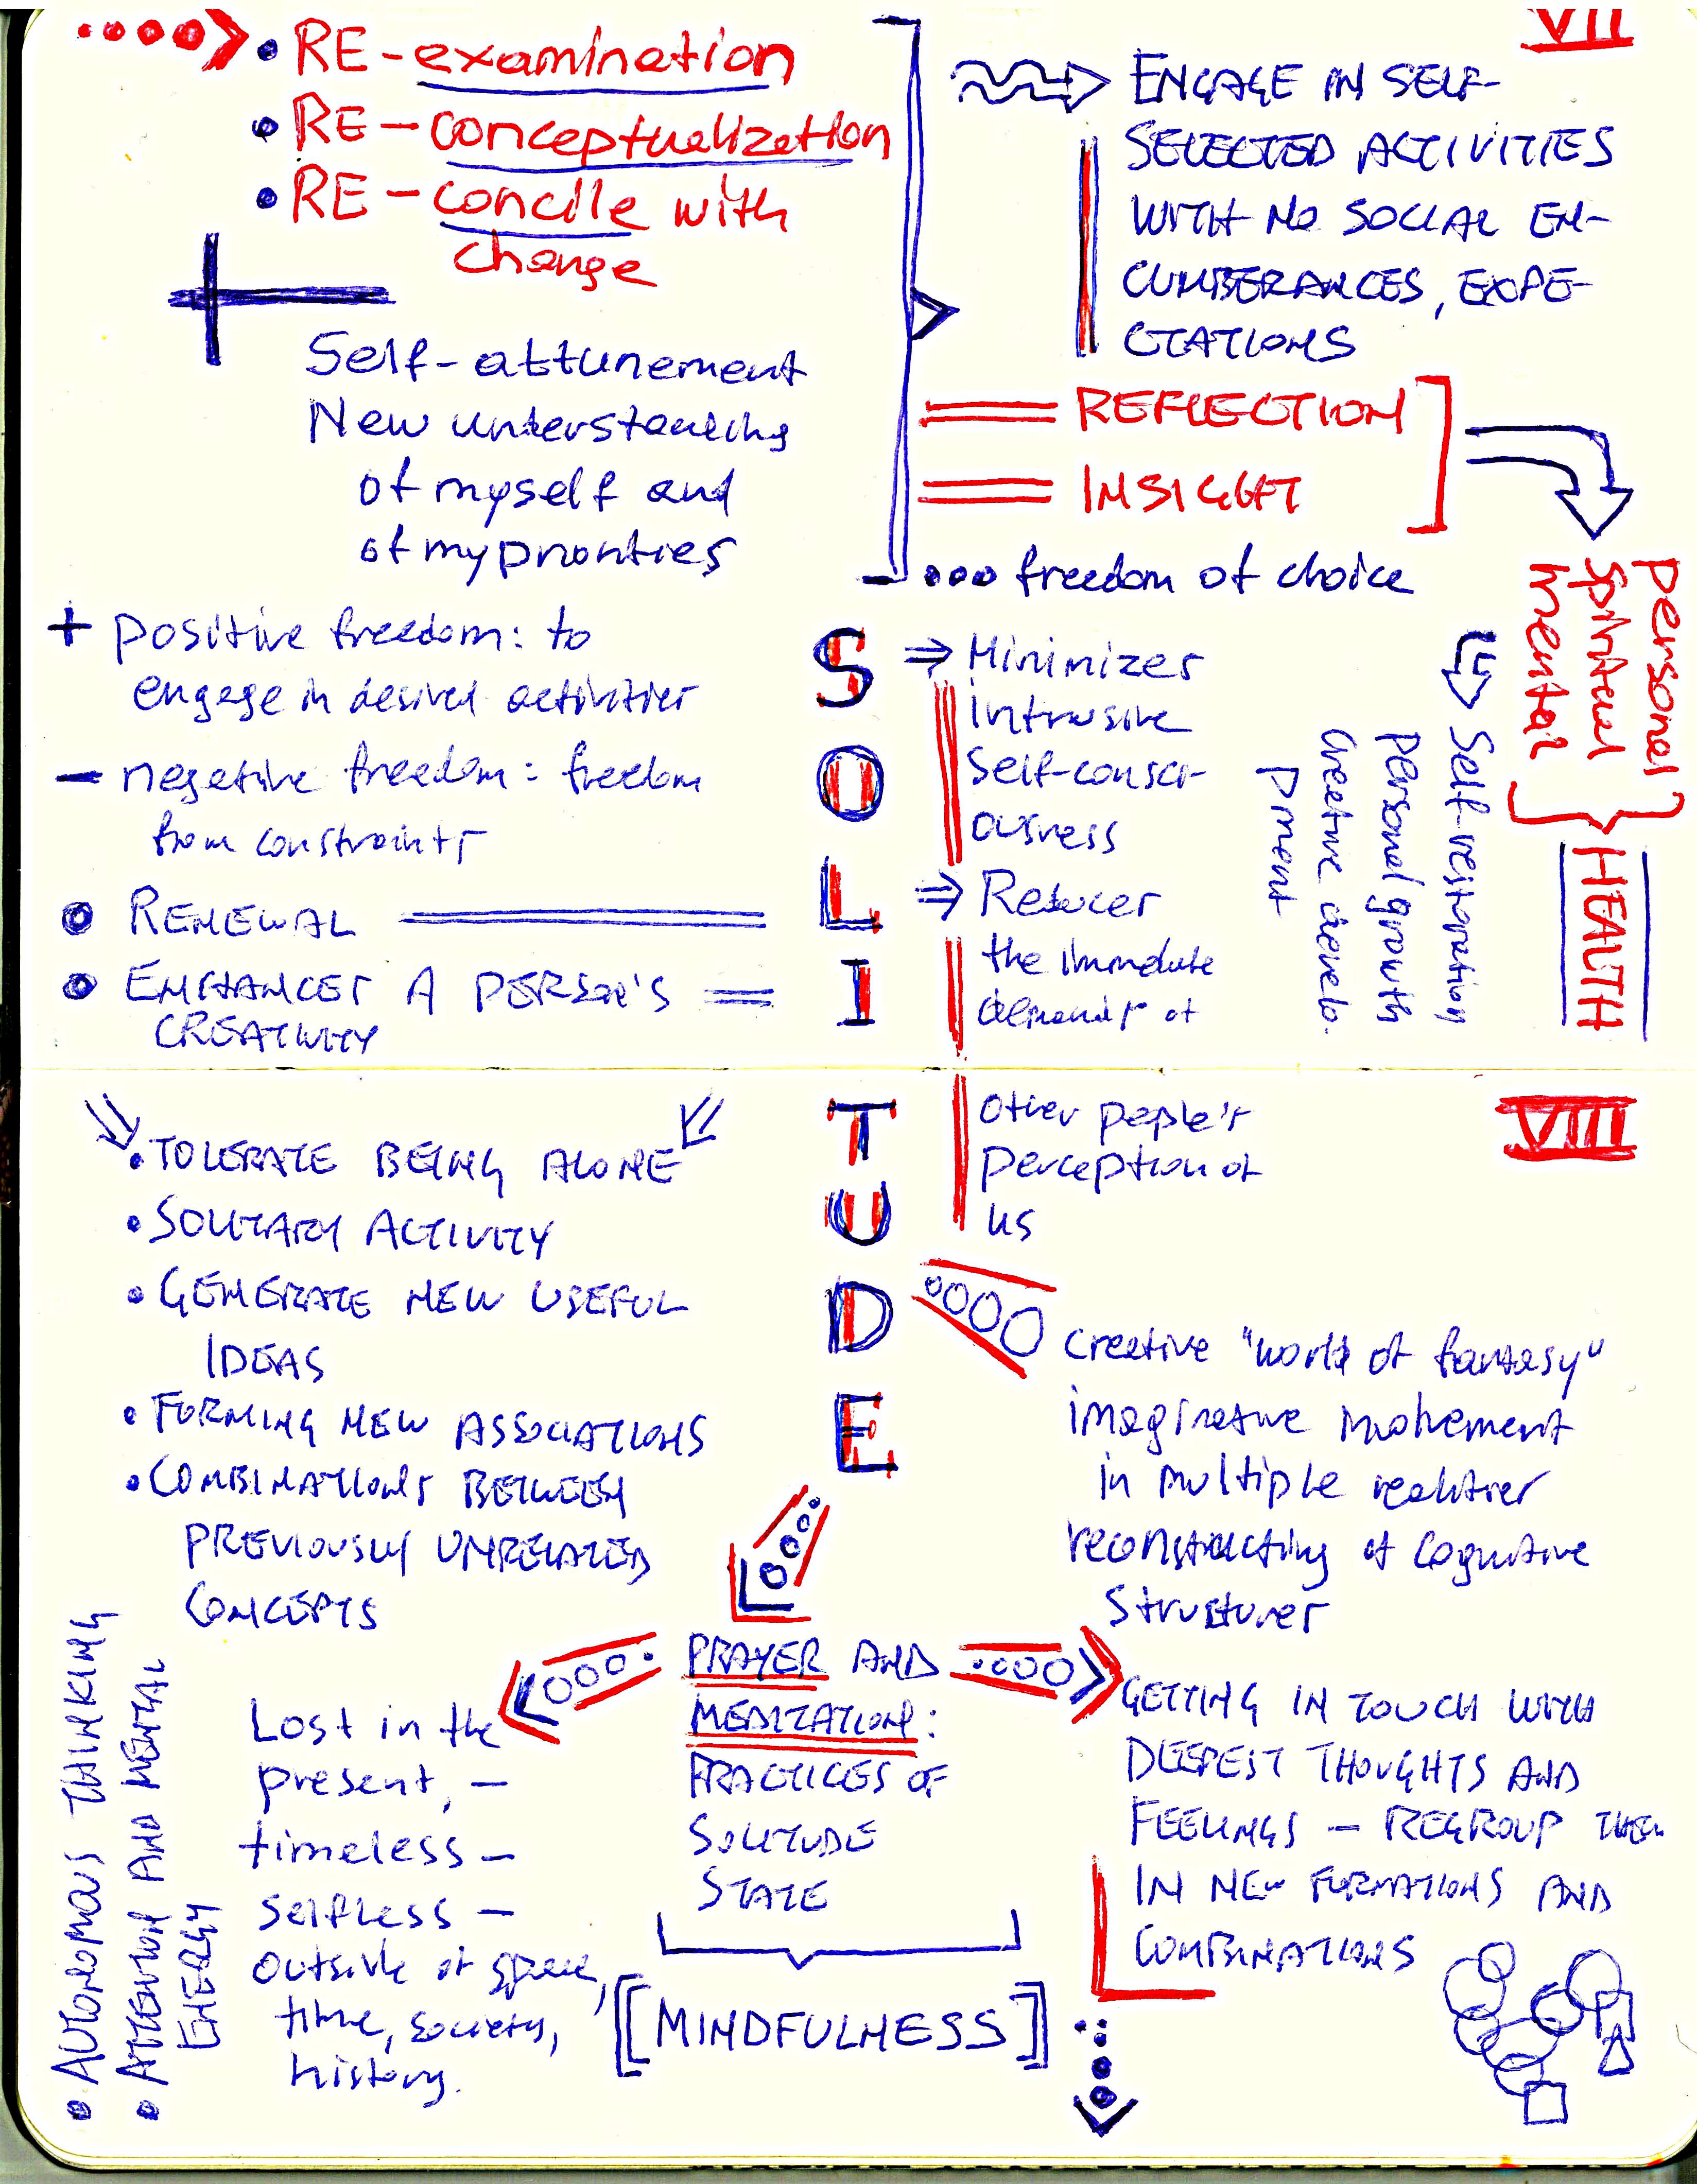 VII
• RE-examination
• RE-conceptualization
• RE-concile with
change
Self-attunement
New understanding
of myself and
of my priorities
ENGAGE IN SELF-
SELECTED ACTIVITIES
WITH NO SOCIAL EN-
CUMBERANCES, EXPE-
CTATIONS
REFLECTION
INSIGHT
••• freedom of choice
personal
spiritual
mental
HEALTH
Self-restoration
personal growth
creative develo-
pment
+ positive freedom: to
engage in desired activities
- negative freedom: freedom
from constraints
RENEWAL
ENHANCES A PERSON'S
CREATIVITY
SOLI
⇒ Minimizes
intrusive
self-consci-
ousness
⇒ Reduces
the immediate
demands of
TUDE
VIII
other people's
perception of
us
• TOLERATE BEING ALONE
• SOLITARY ACTIVITY
• GENERATE NEW USEFUL
IDEAS
• FORMING NEW ASSOCIATIONS
• COMBINATIONS BETWEEN
PREVIOUSLY UNRELATED
CONCEPTS
Creative "world of fantasy"
imaginative involvement
in multiple realities
reconstructing of cognitive
structures
• AUTONOMOUS THINKING
• ATTENTION AND MENTAL
ENERGY
Lost in the
present, -
timeless -
selfless -
outside of space,
time, society,
history.
PRAYER AND
MEDITATION:
PRACTICES OF
SOLITUDE
STATE
[MINDFULNESS]
GETTING IN TOUCH WITH
DEEPEST THOUGHTS AND
FEELINGS - REGROUP THEM
IN NEW FORMATIONS AND
COMBINATIONS